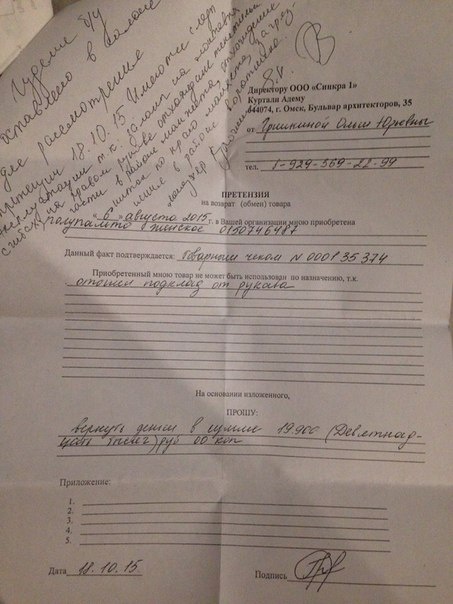 Изделие б/у
оставлено в салоне
для рассмотрения
претензии 18.10.15 Имеются следы
эксплуатации т.к. заломы на
сгибах на правом рукаве
части в районе манжета, отхождение
ниток по краю манжета,
в районе
менеджер
Директору ООО «Синкра 1»
Куртали Адему
644074, г. Омск, Бульвар архитекторов, 35
от Ольги Юрьевны
тел. 8-929-569-22-99
ПРЕТЕНЗИЯ
на возврат (обмен) товара
« 6 » августа 2015 г. в Вашей организации мною приобретена
полупальто женское 0150746487
Данный факт подтверждается: Товарным чеком N 000135374
Приобретенный мною товар не может быть использован по назначению, т.к.
отошел подклад от рукава
На основании изложенного,
ПРОШУ:
вернуть деньги в сумме 19900 (Девятнад-
цать тысяч) руб 00 коп
Приложение:
1.
2.
3.
4.
5.
Дата 18.10.15
Подпись